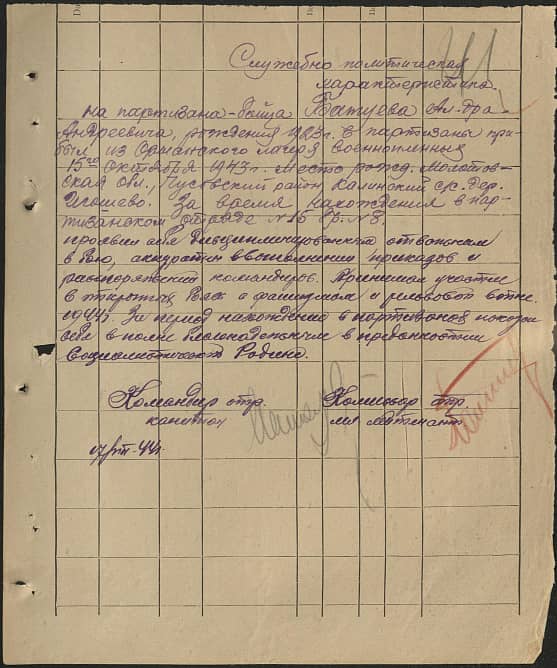 Служебно политическая
характеристика.
на партизана-бойца Ватуева Ал-дра
Андреевича, рождения 1923г. в партизаны при-
был из Оршанского лагеря военнопленных
15го октября 1943г. Место рожд. Молотов-
ская обл., Кусовский район Калинский с/с. дер.
Игошево. За время нахождения в пар-
тизанском отряде №16 бр. №8.
проявил себя дисциплинированным
в бою, аккуратен в выполнении приказов и
распоряжений командиров. Принимал участие
в открытых боях с фашизмом и рельсовой войне.
1944г. За период нахождения в партизанах показал
себя в политическом и преданностии
социалистической Родине.
Командир отр. Комиссар отр
капитан мл лейтенант
44г.